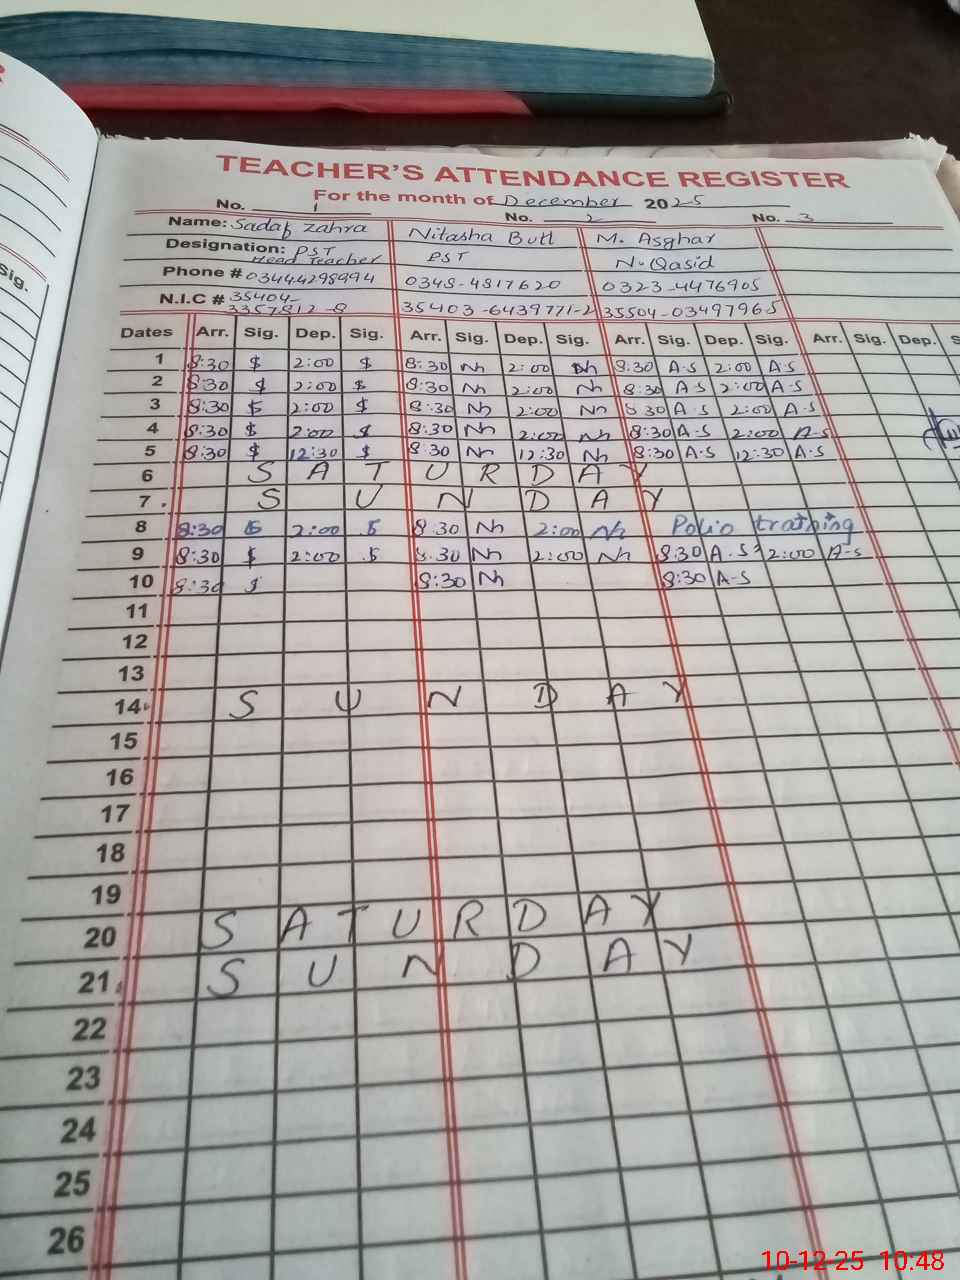 TEACHER'S ATTENDANCE REGISTER
For the month of December 2025
No. 1 No. 2 No. 3
Name: Sadaf Zahra Nitasha Butt M. Asghar
Designation: PST Head Teacher PST N-Qasid
Phone # 03444298994 0348-4817620 0323-4476905
N.I.C # 35404-3357812-8 35403-6439771-2 35504-03497965
Dates Arr. Sig. Dep. Sig. Arr. Sig. Dep. Sig. Arr. Sig. Dep. Sig. Arr. Sig. Dep. S
1 8:30 $ 2:00 $ 8:30 Nh 2:00 Nh 8:30 A-S 2:00 A-S
2 8:30 $ 2:00 $ 8:30 Nh 2:00 Nh 8:30 A-S 2:00 A-S
3 8:30 $ 2:00 $ 8:30 Nh 2:00 Nh 8:30 A-S 2:00 A-S
4 8:30 $ 2:00 $ 8:30 Nh 2:00 Nh 8:30 A-S 2:00 A-S
5 8:30 $ 12:30 $ 8:30 Nh 12:30 Nh 8:30 A-S 12:30 A-S
6 SATURDAY
7 SUNDAY
8 8:30 $ 2:00 $ 8:30 Nh 2:00 Nh Polio training
9 8:30 $ 2:00 $ 8:30 Nh 2:00 Nh 8:30 A-S 2:00 A-S
10 8:30 $ 8:30 Nh 8:30 A-S
11
12
13
14 SUNDAY
15
16
17
18
19
20 SATURDAY
21 SUNDAY
22
23
24
25
26
Sig.
10-12-25 10:48